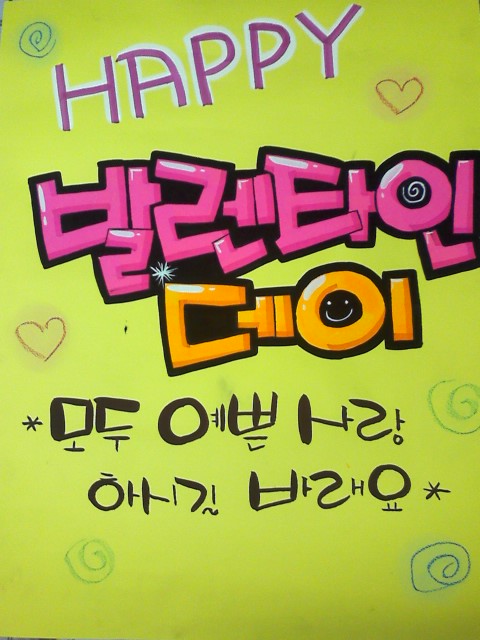 HAPPY
발렌타인
데이
*모두 예쁜 사랑
하시길 바래요*